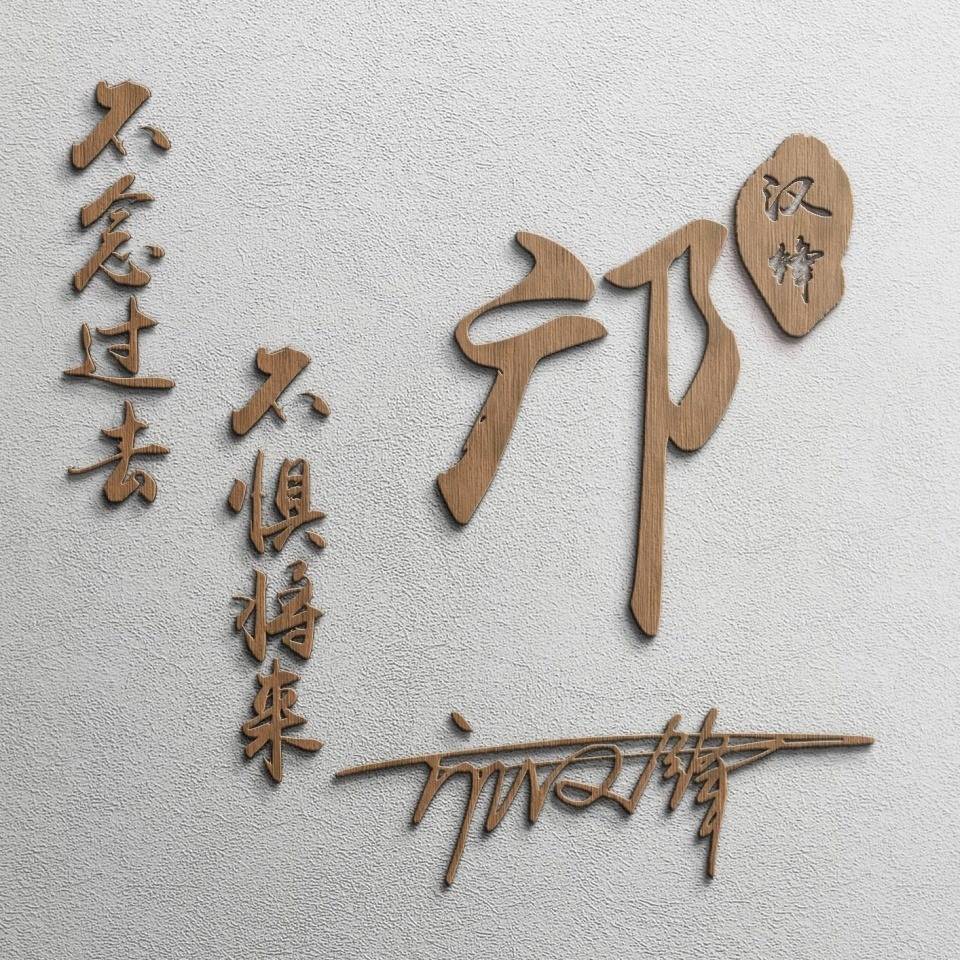 不念过去
不惧将来
邝
汉锋
邝汉锋